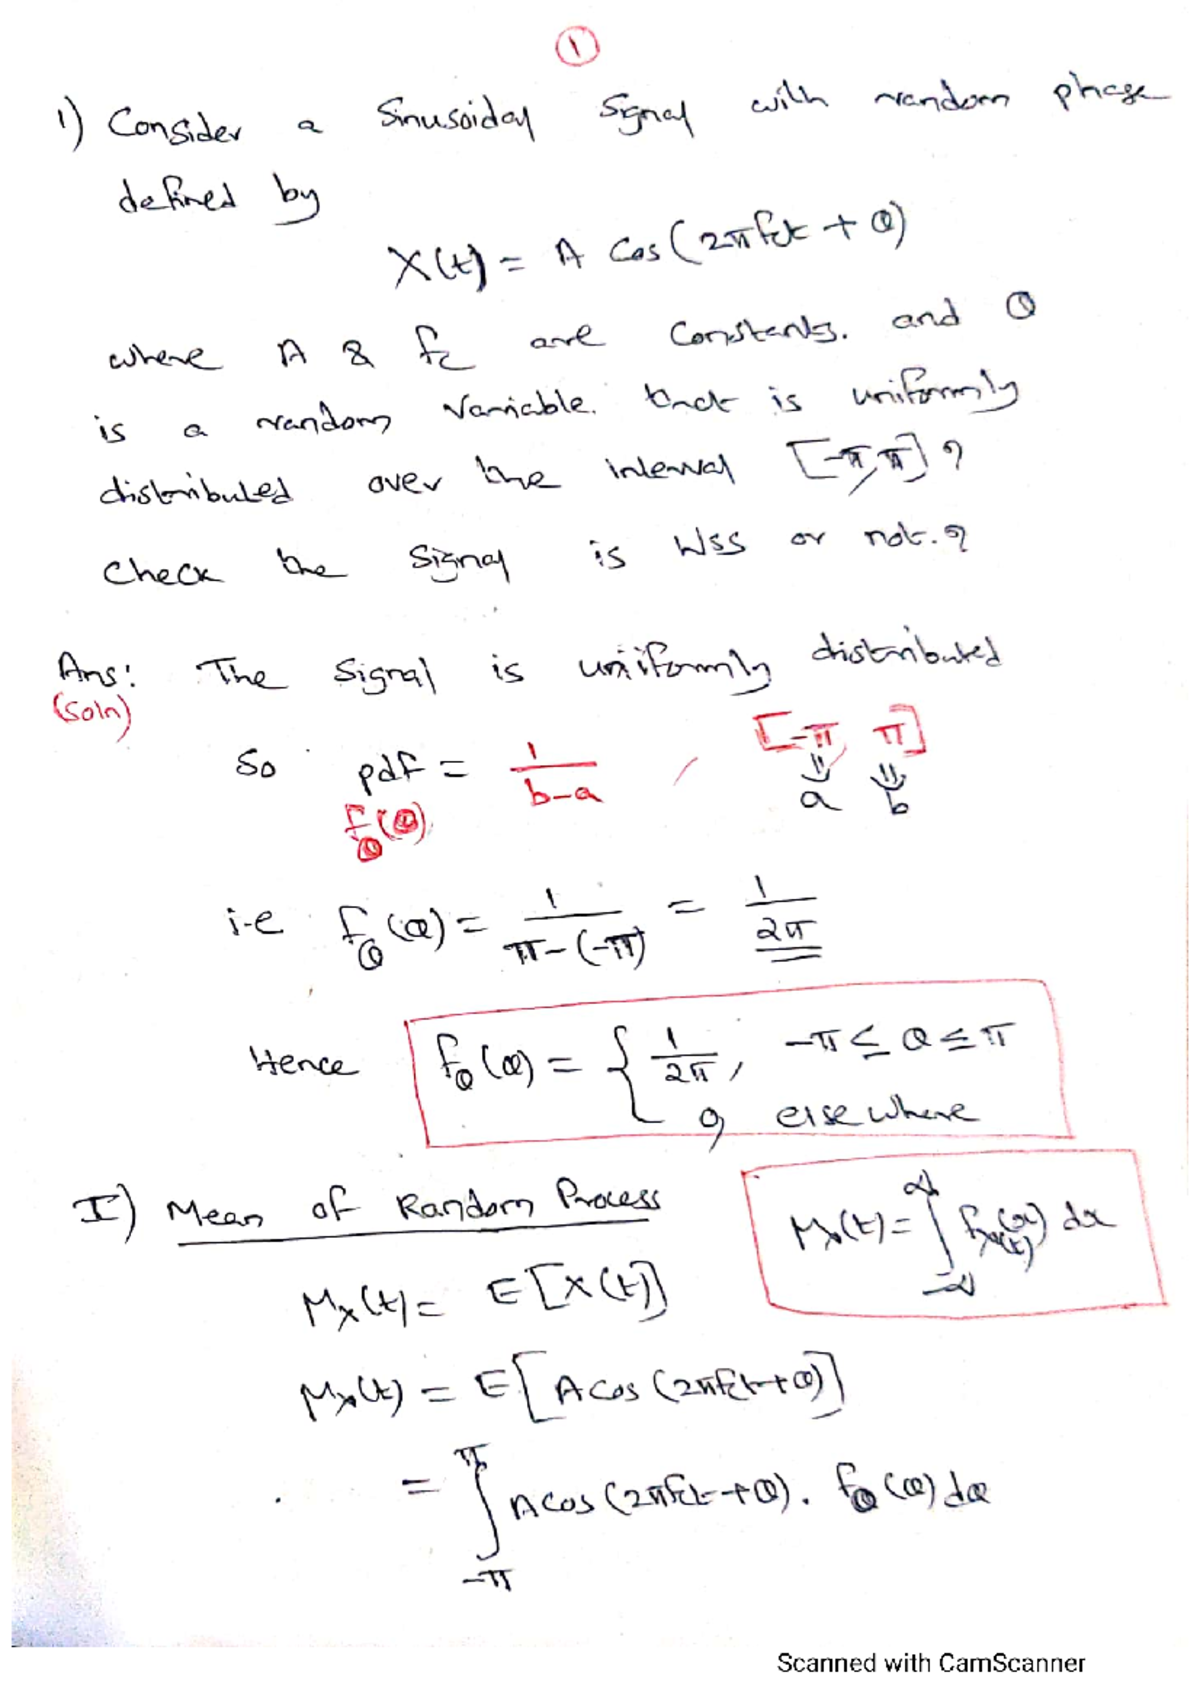 1
1) Consider a Sinusoidal Signal with random phase
defined by
X(t) = A Cos(2πfct + Θ)
where A & fc are Constants. and Θ
is a random Variable. that is uniformly
distributed over the interval [-π, π] ?
Check the Signal is WSS or not. ?
Ans: The Signal is uniformly distributed
(Soln)
[-π, π]
So pdf = 1/(b-a) ,
a b
fΘ(Θ)
i.e fΘ(Θ) = 1/(π-(-π)) = 1/2π
Hence fΘ(Θ) = { 1/2π, -π ≤ Θ ≤ π
0, elsewhere
I) Mean of Random Process
Mx(t) = ∫_{-∞}^{∞} fx(t)(x) dx
Mx(t) = E[X(t)]
Mx(t) = E[A Cos(2πfct+Θ)]
= ∫_{-π}^{π} A Cos(2πfct+Θ). fΘ(Θ) dΘ
Scanned with CamScanner